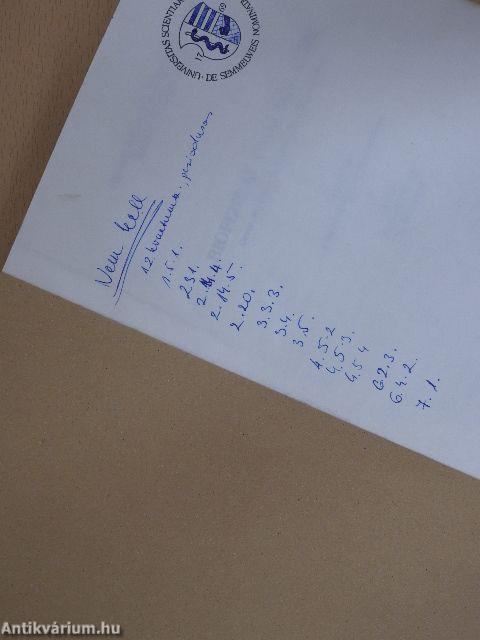 UNIVERSITAS SCIENTIA
DE SEMMELWEIS NOMINATA
Nem kell
1.2. periodusos
1.5.1.
2.3.1.
2.11.4.
2.14.5.
2.20.
3.3.3.
3.4.
3.5.
4.5.2
4.5.3.
4.5.4
6.2.3.
6.4.2.
7.1.
Antikvárium.hu